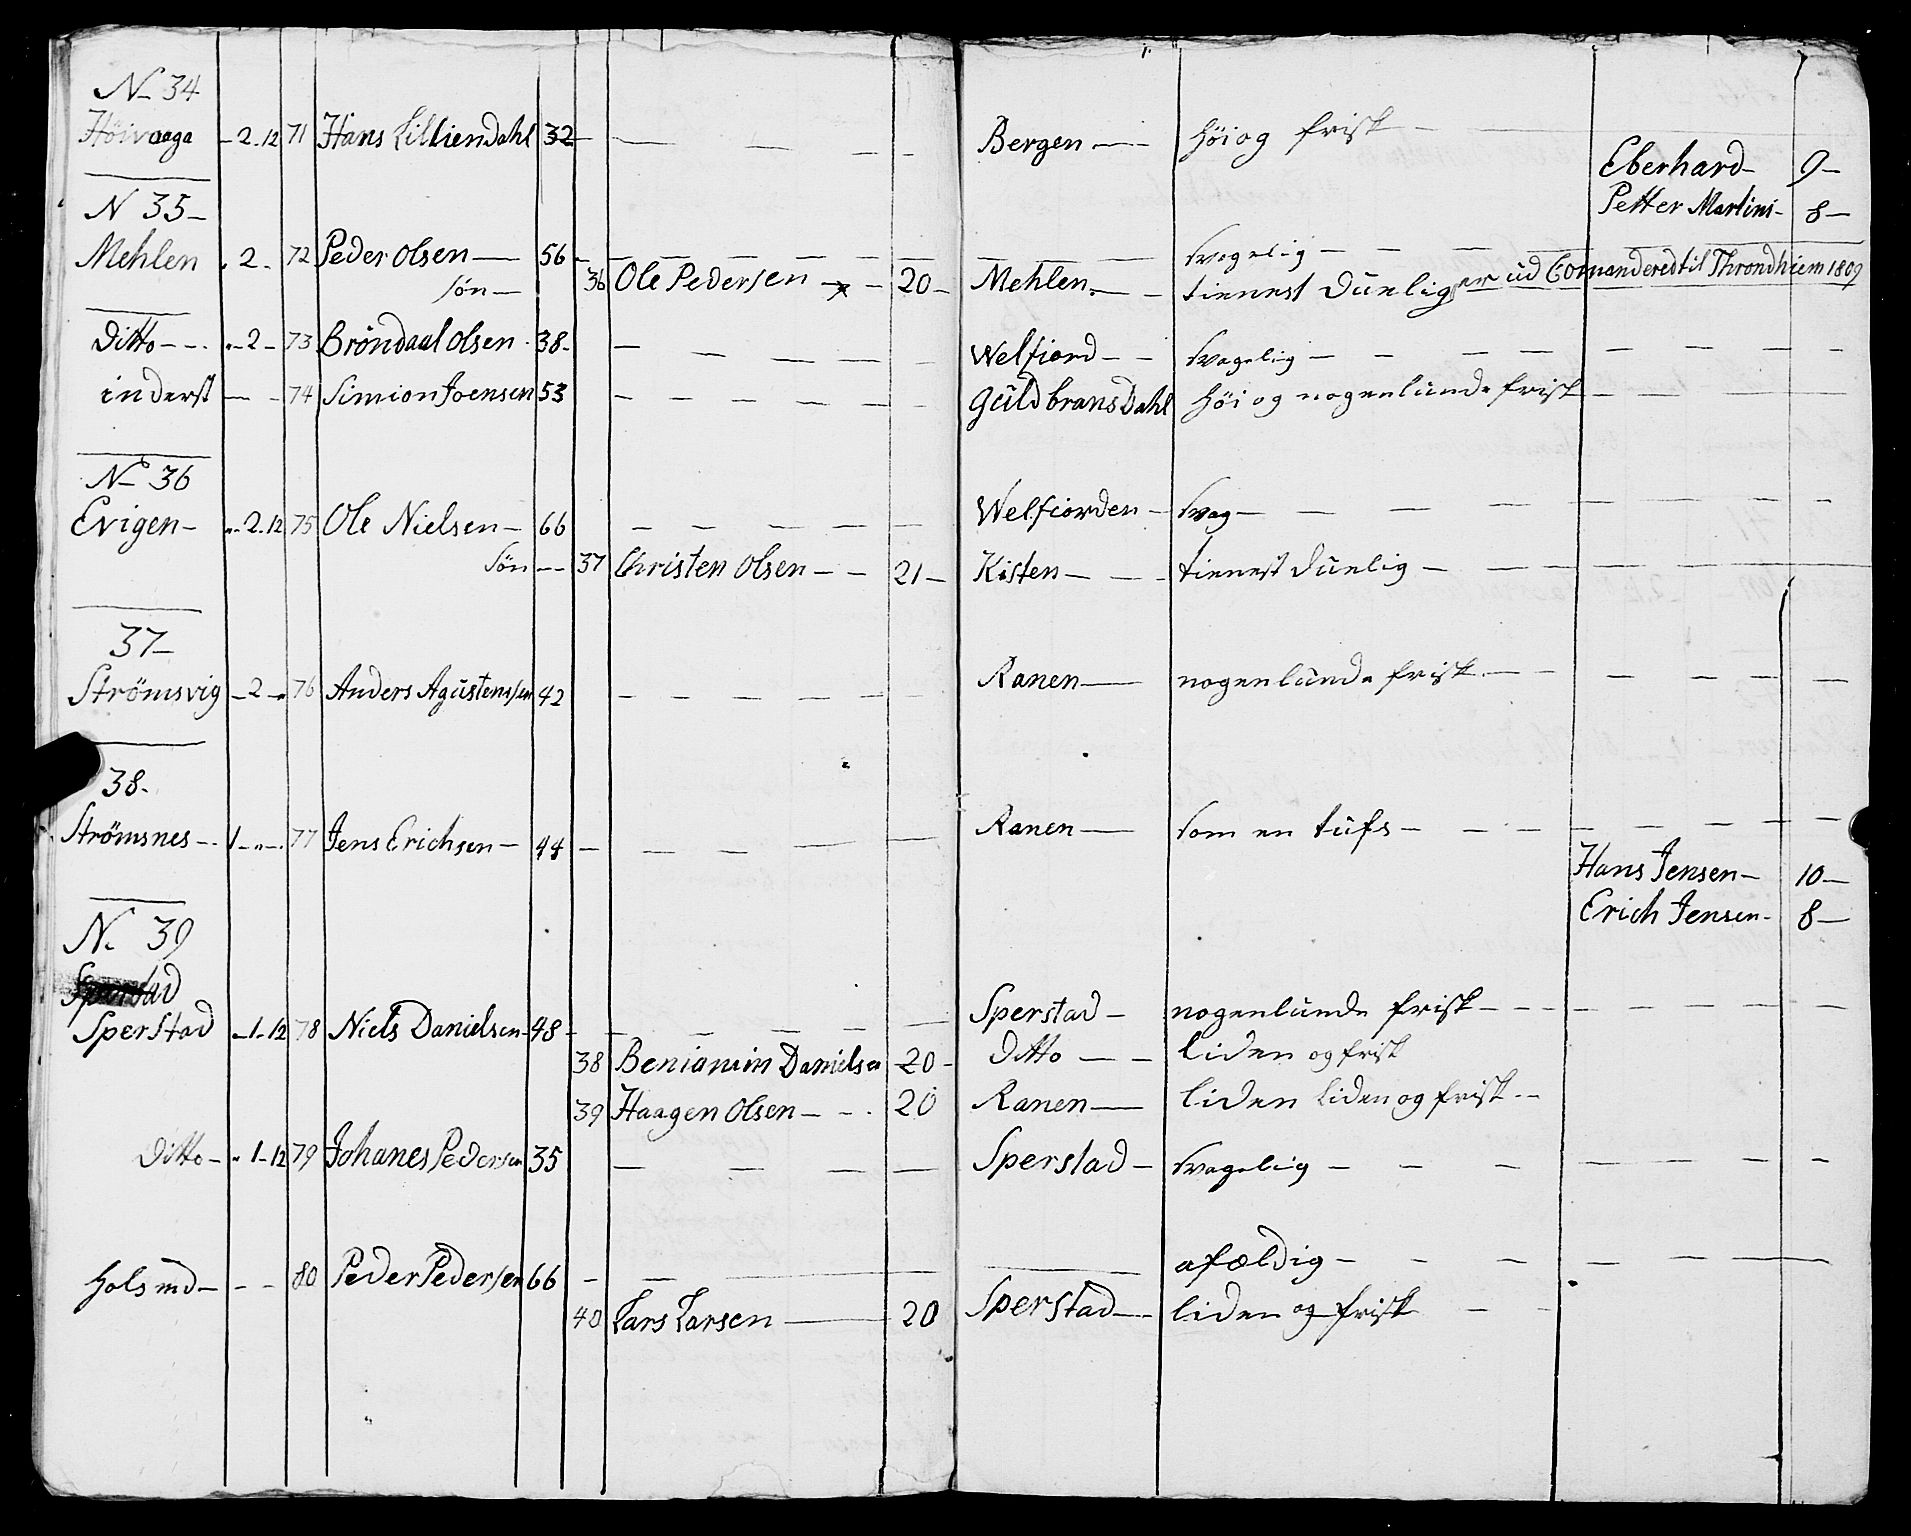 N 34
Höivaaga - 2 - 12 71 Hans Lilliendahl 32 — — — — — Bergen — höi og frisk — —
Eberhard - 9 -
Petter Martini - 8 -
N 35 -
Mehlen . 2 - 72 Peder Olsen — 56 - — — — — — svagelig — — — — — —
søn — 36 Ole Pedersen — x - 20 - Mehlen. — tienest duelig er ud Comanderedtil Throndhiem 1809
Ditto - - . - 2 - 73 Bröndaal Olsen . 38 - — — — — — Welfiord - - svagelig — — — — — — — —
inderst — - 74 Simion Joensen 53 — — — — — — Guldbransdahl höi og nogenlunde frisk — — — —
N 36
Evigen - - 2 . 12 75 Ole Nielsen - 66 — — — — — Welfiorden - svag — — — — — — — —
søn - - 37 Christen Olsen - - 21 - Kisten - - - tienest duelig — — — — — —
37 -
Strömsvig - 2 - 76 Anders Agustenssen 42 — — — — — Ranen — nogenlunde frisk — — — — — —
38 -
Strömsnes - . 1 - „ - . 77 Jens Erichsen - 44 — — — — — Ranen — som en tufs - — — — — — — —
Hans Jensen - 10 -
Erich Jensen - 8 -
N. 39
Sperstad
Sperstad - 1 - 12 78 Niels Danielsen - 48 - — — — — — Sperstad - nogenlunde frisk - - - — — — — —
38 Beniamin Danielsen 20 - Ditto - - liden og frisk
39 Haagen Olsen - - . 20 Ranen — liden liden og frisk - -
Ditto - „ 1 - 12 79 Johanes Pedersen 35 — — — — Sperstad - svagelig — — — — — —
Holsmd - - - 80 Peder Pedersen 66 - — — — — afældig — — — — — —
40 Lars Larsen — 20 Sperstad - - liden og frisk — —